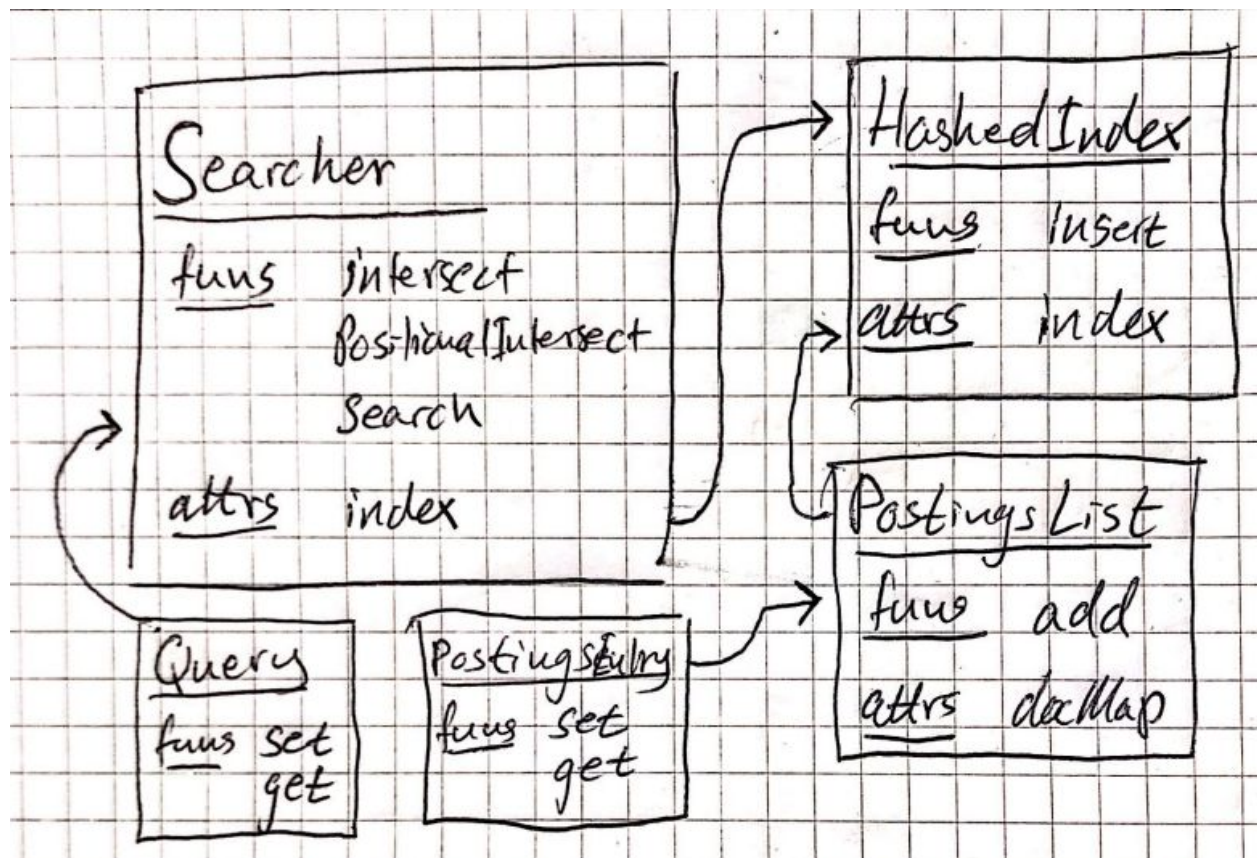 Searcher
funs intersect
PositionalIntersect
Search
attrs index
HashedIndex
funs insert
attrs index
PostingsList
funs add
attrs docMap
Query
funs set
get
PostingsEntry
funs set
get